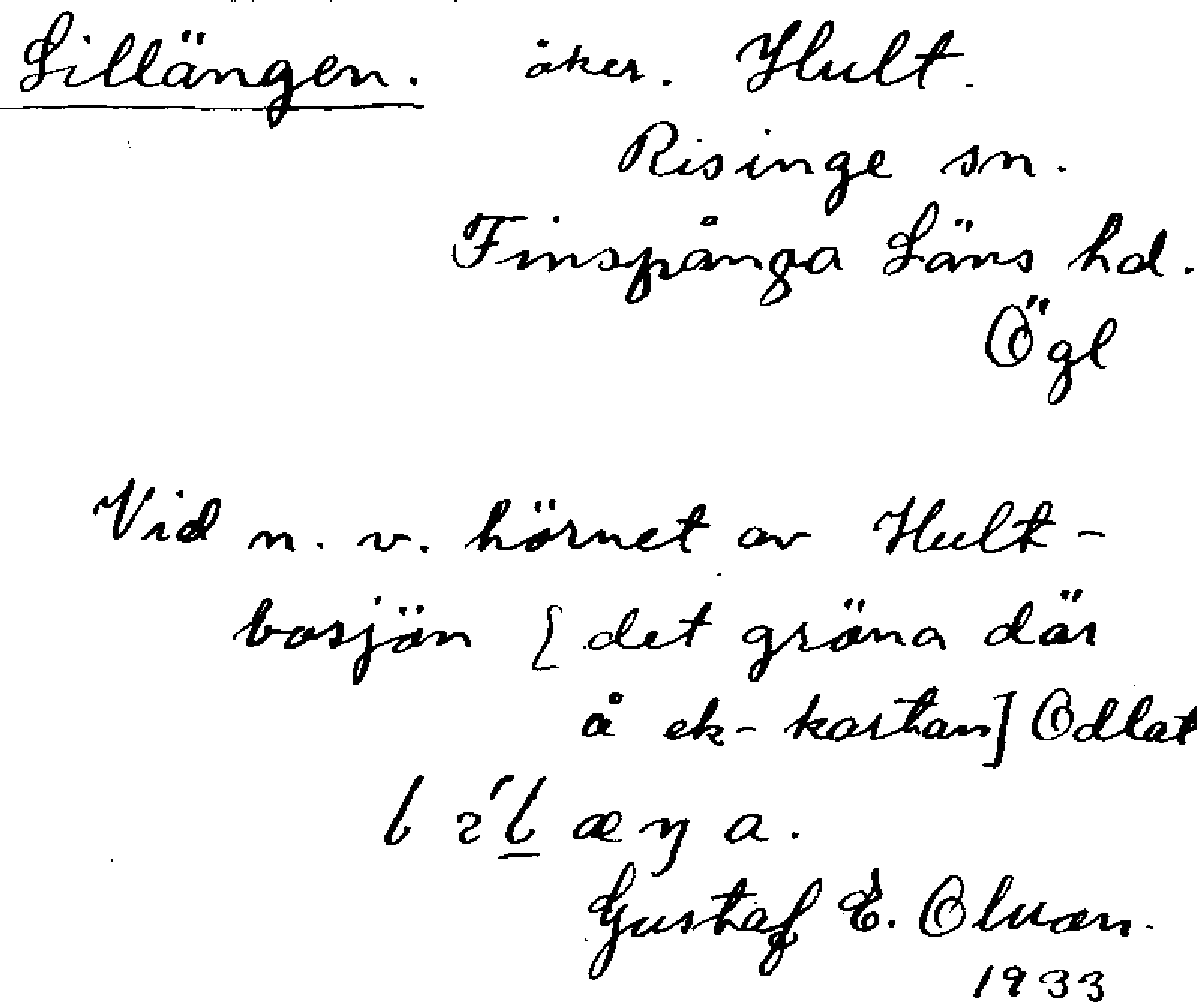 Lillängen. åker. Hult.
Risinge sn.
Finspånga Läns hd.
Ögl
Vid n. v. hörnet av Hult-
bosjön [det gröna där
å ek-kartan] Odlat
Gustaf E.
1933